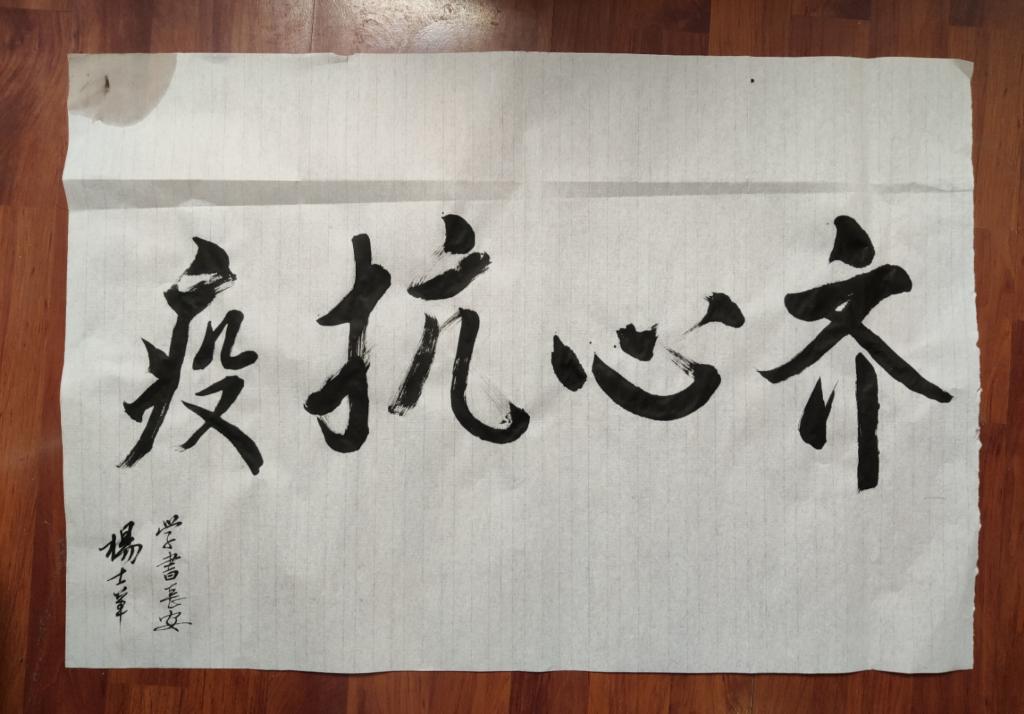 齐心抗疫
学書長安
楊士草